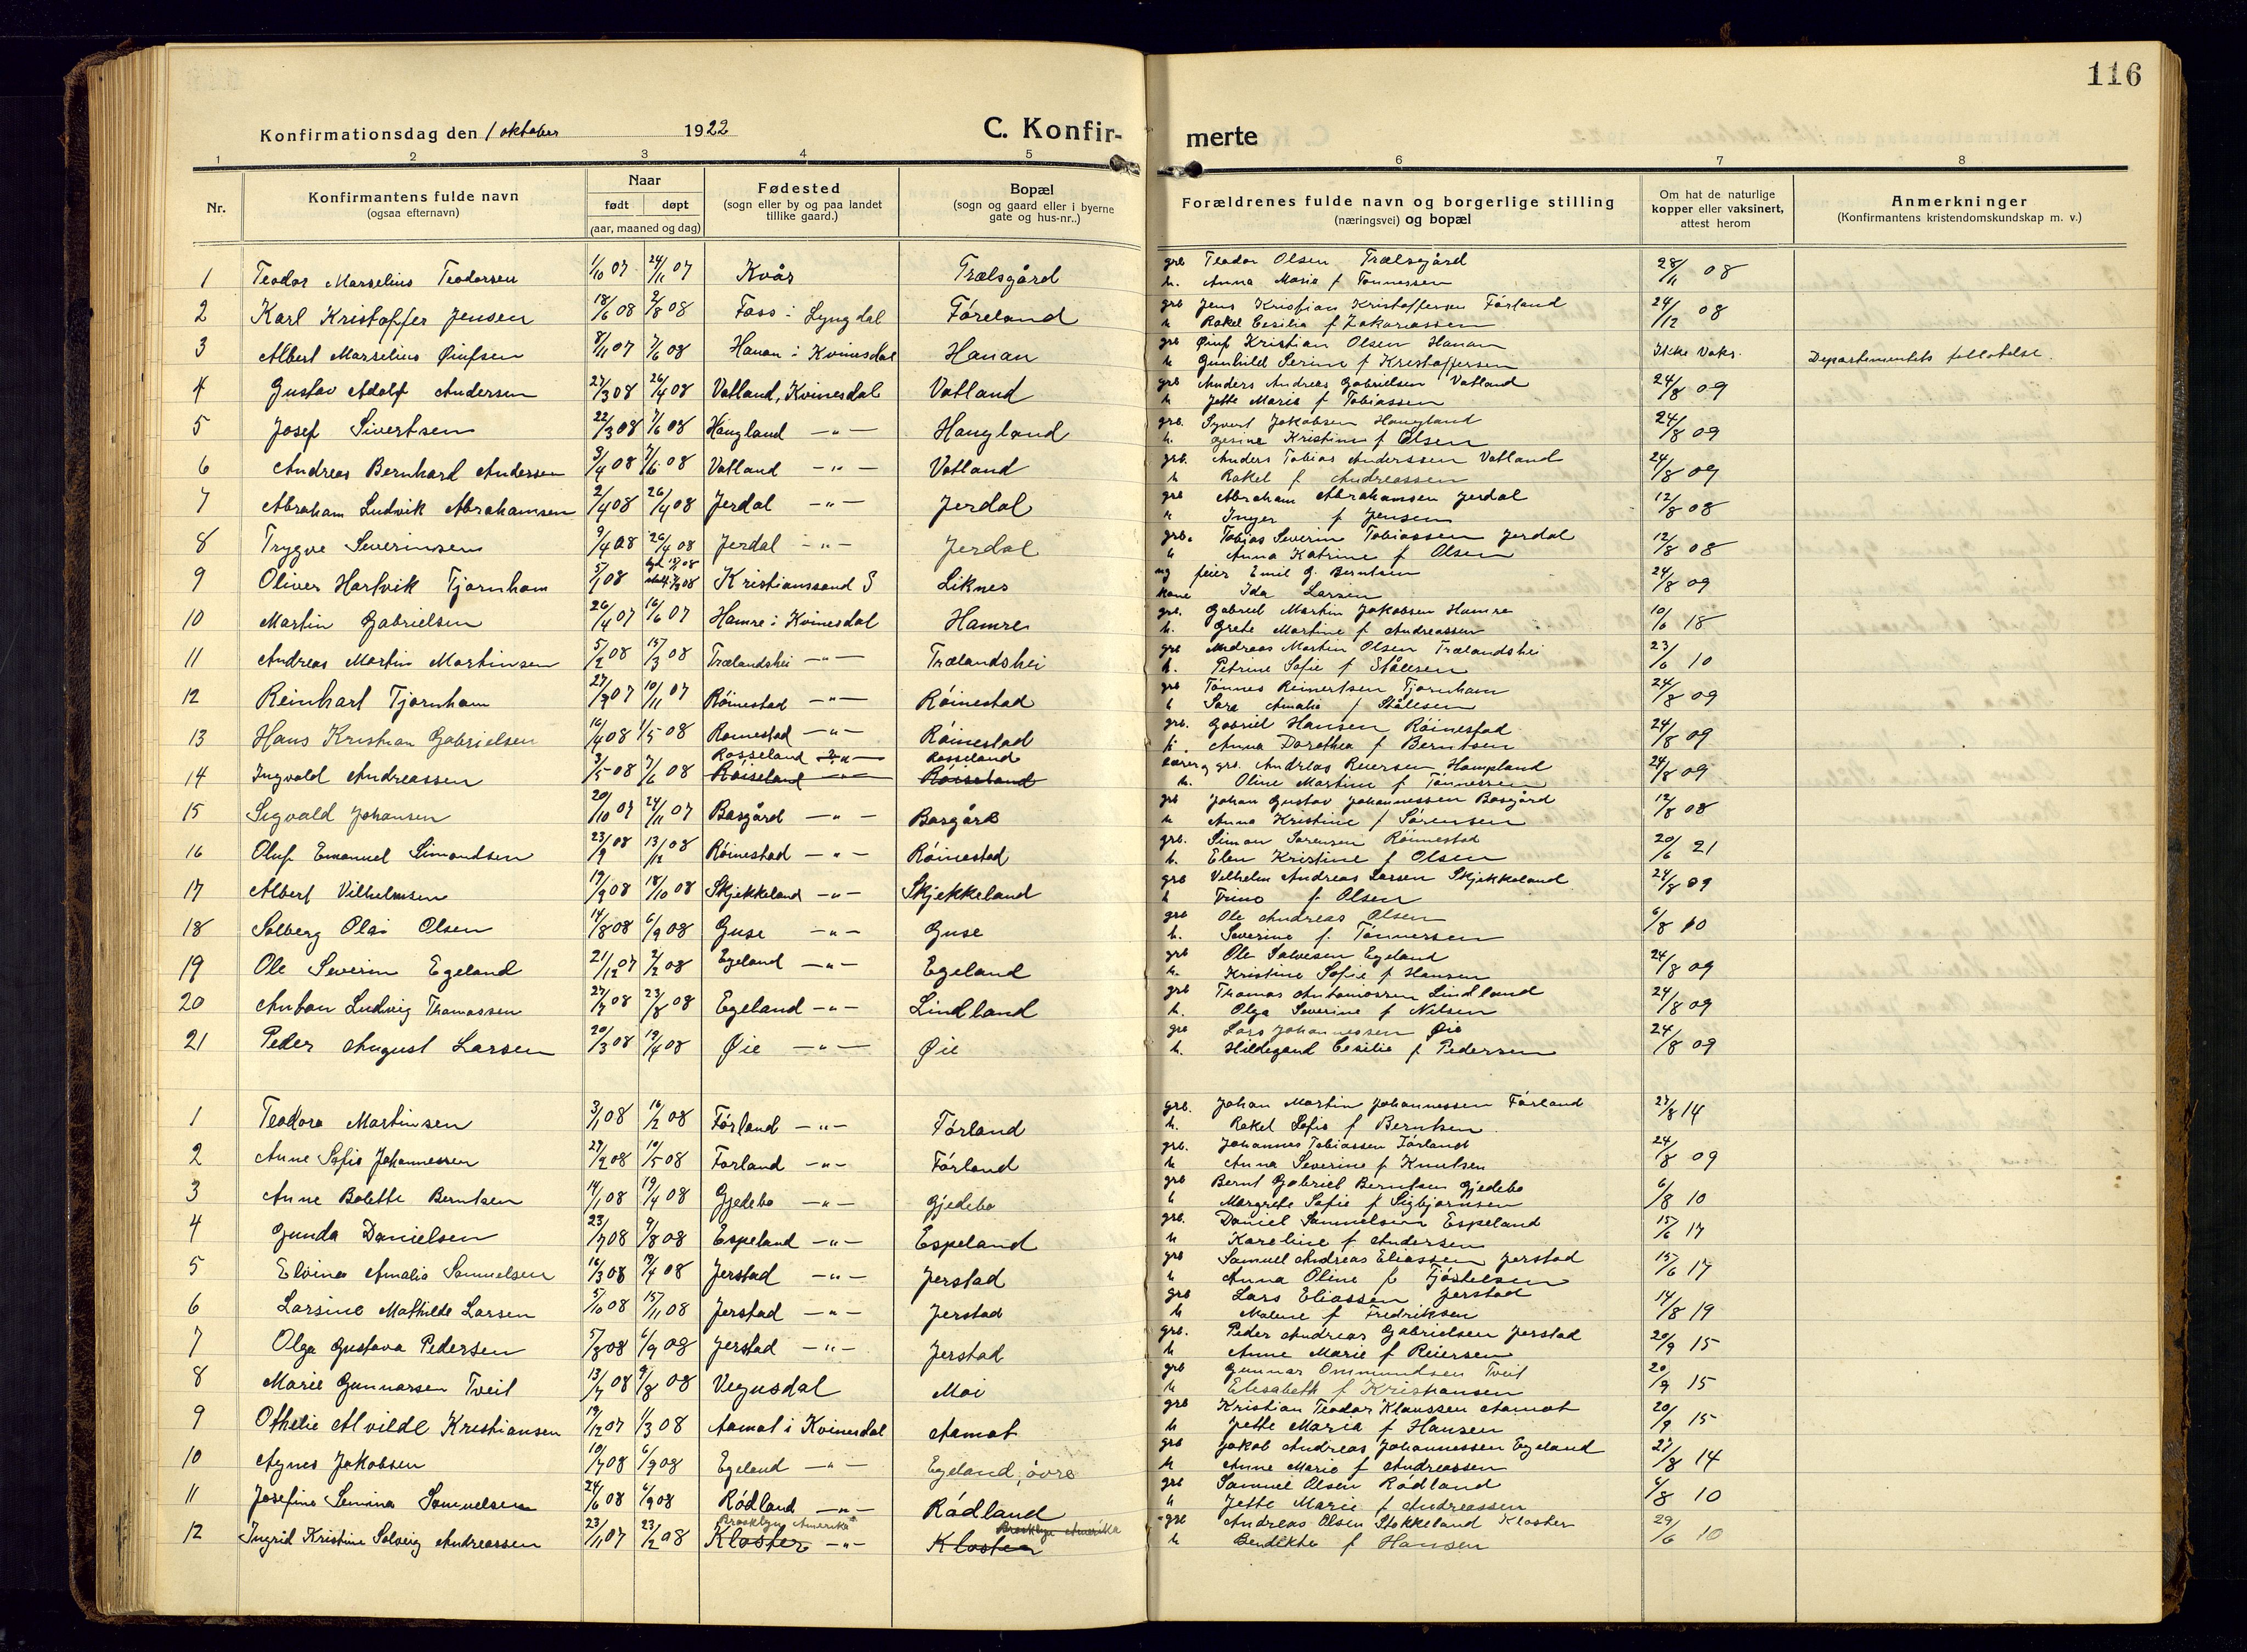 116
Konfirmationsdag den 1 oktober 1922 C. Konfir- merte
1 2 3 4 5 6 7 8
Nr. Konfirmantens fulde navn (ogsaa efternavn) Naar født døpt (aar, maaned og dag) Fødested (sogn eller by og paa landet tillike gaard.) Bopæl (sogn og gaard eller i byerne gate og hus-nr..) Forældrenes fulde navn og borgerlige stilling (næringsvei) og bopæl Om hat de naturlige kopper eller vaksinert, attest herom Anmerkninger (Konfirmantens kristendomskundskap m. v.)
1 Teodor Marselius Teodorsen 1/10 07 24/11 07 Kvås Trælsgård grb Teodor Olsen Trælsgård 28/11 08
h. Anna Maria f Tønnessen
2 Karl Kristoffer Jensen 18/6 08 2/8 08 Foss i Lyngdal Føreland grb Jens Kristian Kristoffersen Førland 24/12 08
h Rakel Cesilia f Zakariassen
3 Albert Marselius Øiufsen 8/11 07 7/6 08 Hanan i Kvinesdal Hanan grb Øiuf Kristian Olsen Hanan Ikke Vaks. Departementets tillatelse.
h Gunhild Serine f Kristoffersen
4 Gustav Adolf Andersen 27/3 08 26/4 08 Vatland, Kvinesdal Vatland grb Anders Andreas Gabrielsen Vatland 24/8 09
h Jette Marie f Tobiassen
5 Josef Sivertsen 22/3 08 7/6 08 Haugland -"- Haugland grb. Syvert Jakobsen Haugland 24/8 09
h. Gesine Kristine f Olsen
6 Andreas Bernhard Andersen 3/4 08 7/6 08 Vatland -"- Vatland grb. Anders Tobias Anderssen Vatland 24/8 09
h Rakel f Andreassen
7 Abraham Ludvik Abrahamsen 2/4 08 26/4 08 Jerdal -"- Jerdal grb Abraham Abrahamsen Jerdal 12/8 08
h Inger f Jensen
8 Trygve Severinsen 9/4 08 26/4 08 Jerdal -"- Jerdal grb. Tobias Severin Tobiassen Jerdal 12/8 08
h Anna Katrine f Olsen
9 Oliver Hartvik Tjørnhom 5/1 08 Kristianssand S Liknes ug feier Emil G. Berntsen 24/8 09
kone Ida Larsen
10 Martin Gabrielsen 26/4 07 16/6 07 Hamre i Kvinesdal Hamre grb. Gabriel Martin Jakobsen Hamre 10/6 18
h. Grete Martine f Andreassen
11 Andreas Martin Martinsen 5/2 08 15/3 08 Trælandshei -"- Trælandshei grb Andreas Martin Olsen Trælandshei 23/6 10
h. Petrine Sofie f Stålesen
12 Reinhart Tjørnhom 27/9 07 10/11 07 Røinestad -"- Røinestad grb Tønnes Reinertsen Tjørnhom 24/8 09
h Sara Amalia f Stålesen
13 Hans Kristian Gabrielsen 16/4 08 1/5 08 Røinestad -"- Røinestad grb. Gabriel Hansen Røinestad 24/8 09
h. Anna Dorothea f Berntsen
Rosseland -"- Rosseland
14 Ingvald Andreassen 3/5 08 7/6 08 Røiseland -"- Røisseland grb. Andreas Reiersen Haugland 24/8 09
h. Oline Martine f Tønnessen
15 Sigvald Johansen 20/10 07 24/11 07 Basgård -"- Basgård grb Johan Gustav Johannessen Basgård 12/8 08
h Anna Kristine f Sørensen
16 Oluf Emanuel Simondsen 23/9 08 13/12 08 Røinestad -"- Røinestad grb. Simon Sørensen Røinestad 20/6 21
h. Elen Kristine f Olsen
17 Albert Vilhelmsen 19/9 08 18/10 08 Skjekkeland -"- Skjekkeland grb Vilhelm Andreas Larsen Skjekkeland 24/8 09
h Trine f Olsen
18 Solberg Olai Olsen 14/8 08 6/9 08 Guse -"- Guse grb Ole Andreas Olsen 6/8 10
h. Severine f. Tønnessen
19 Ole Severin Egeland 21/12 07 2/2 08 Egeland -"- Egeland grb Ole Salvesen Egeland 24/8 09
h. Kristine Sofie f Hansen
20 Anton Ludvig Thomassen 27/7 08 23/8 08 Egeland -"- Lindland grb Thomas Antoniossen Lindland 24/8 09
h. Olga Severine f Nilsen
21 Peder August Larsen 20/3 08 19/4 08 Øie -"- Øie grb Lars Johannessen Øie 24/8 09
h. Hildegand Cesilie f Pedersen
1 Teodora Martinsen 3/1 08 16/2 08 Førland -"- Førland grb. Johan Martin Johannessen Førland 27/8 14
h. Rakel Sofie f Berntsen
2 Anne Sofie Johannessen 27/2 08 10/5 08 Førland -"- Førland grb. Johannes Tobiassen Førland 24/8 09
h Anna Severine f Knutsen
3 Anne Bolette Berntsen 14/1 08 19/4 08 Gjedebo -"- Gjedebo grb Bernt Gabriel Berntsen Gjedebo 6/8 10
h Margrete Sofie f Sigbjørnsen
4 Gunda Danielsen 23/7 08 9/8 08 Espeland -"- Espeland grb. Daniel Samuelsen Espeland 15/6 17
h Kareline f Andersen
5 Elvina Amalia Samuelsen 16/3 08 19/4 08 Jerstad -"- Jerstad grb Samuel Andreas Eliassen Jerstad 15/6 17
h Anna Oline f Tjøstelsen
6 Larsine Mathilde Larsen 5/10 08 15/11 08 Jerstad -"- Jerstad grb Lars Eliassen Jerstad 14/8 19
h Malene f Fredriksen
7 Olga Gustava Pedersen 5/8 08 6/9 08 Jerstad -"- Jerstad grb. Peder Andreas Gabrielsen Jerstad 20/9 15
h Anne Marie f Reiersen
8 Marie Gunnarsen Tveit 13/7 08 9/8 08 Vegusdal Moi grb Gunnar Ommundsen Tveit 20/9 15
h Elisabeth f Kristiansen
9 Othelie Alvilde Kristiansen 19/12 07 1/3 08 Aamot i Kvinesdal Aamot grb Kristian Teodor Klaussen Aamot 20/9 15
h Jette Maria f Hansen
10 Agnes Jakobsen 10/7 08 6/9 08 Egeland -"- Egeland, øvre grb Jakob Andreas Johannessen Egeland 27/8 14
h Anne Marie f Andreassen
11 Josefine Semina Samuelsen 24/6 08 6/9 08 Rødland -"- Rødland grb Samuel Olsen Rødland 6/8 10
h Jette Marie f Andreassen
Brooklyn Amerika Brooklyn Amerika
12 Ingrid Kristine Solveig Andreassen 23/11 07 23/2 08 Kloster -"- Kloster grb Andreas Olsen Stokkeland Kloster 29/6 10
h Bendikte f Hansen